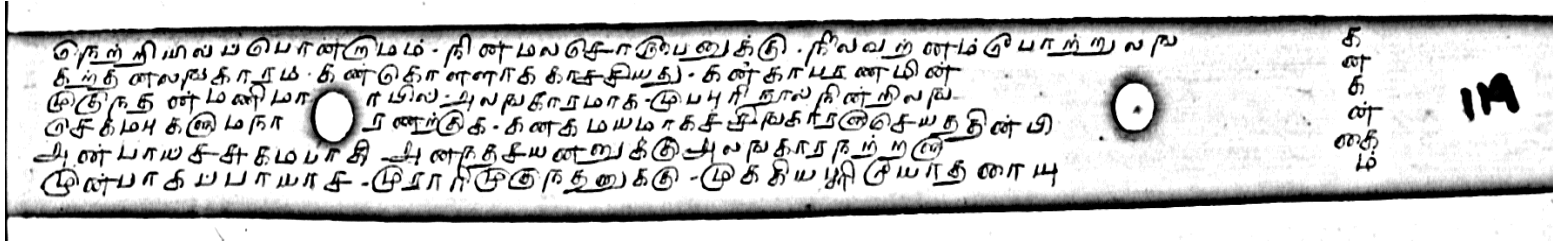 நெற்றியில ப பொன்றுமம - நினமலசொரூபனுக்கு - நீலவற்ணம் போற்றுலங
கற்தனலஙகாரம - கண்கொளளாக காசசியது - கன்காபரணமின்
முகுநத ன்மணிமா ர யில - அலஙகாரமாக - முபபுரிநூல நின்றிலங
செகமபுகளுமநா ரணற்கு - கனகமயமாகச சிஙகாரஞசெயததின் பி
அன்பாய சசுகமபாகி அனநதசயனனுக்கு அலஙகாரநற்றஞ
முன்பாகப பாயாச - முராரிமுகுநதனுக்கு - முககியபூரியாதரையு
க
ன
க
ன்
கை
ம்
119